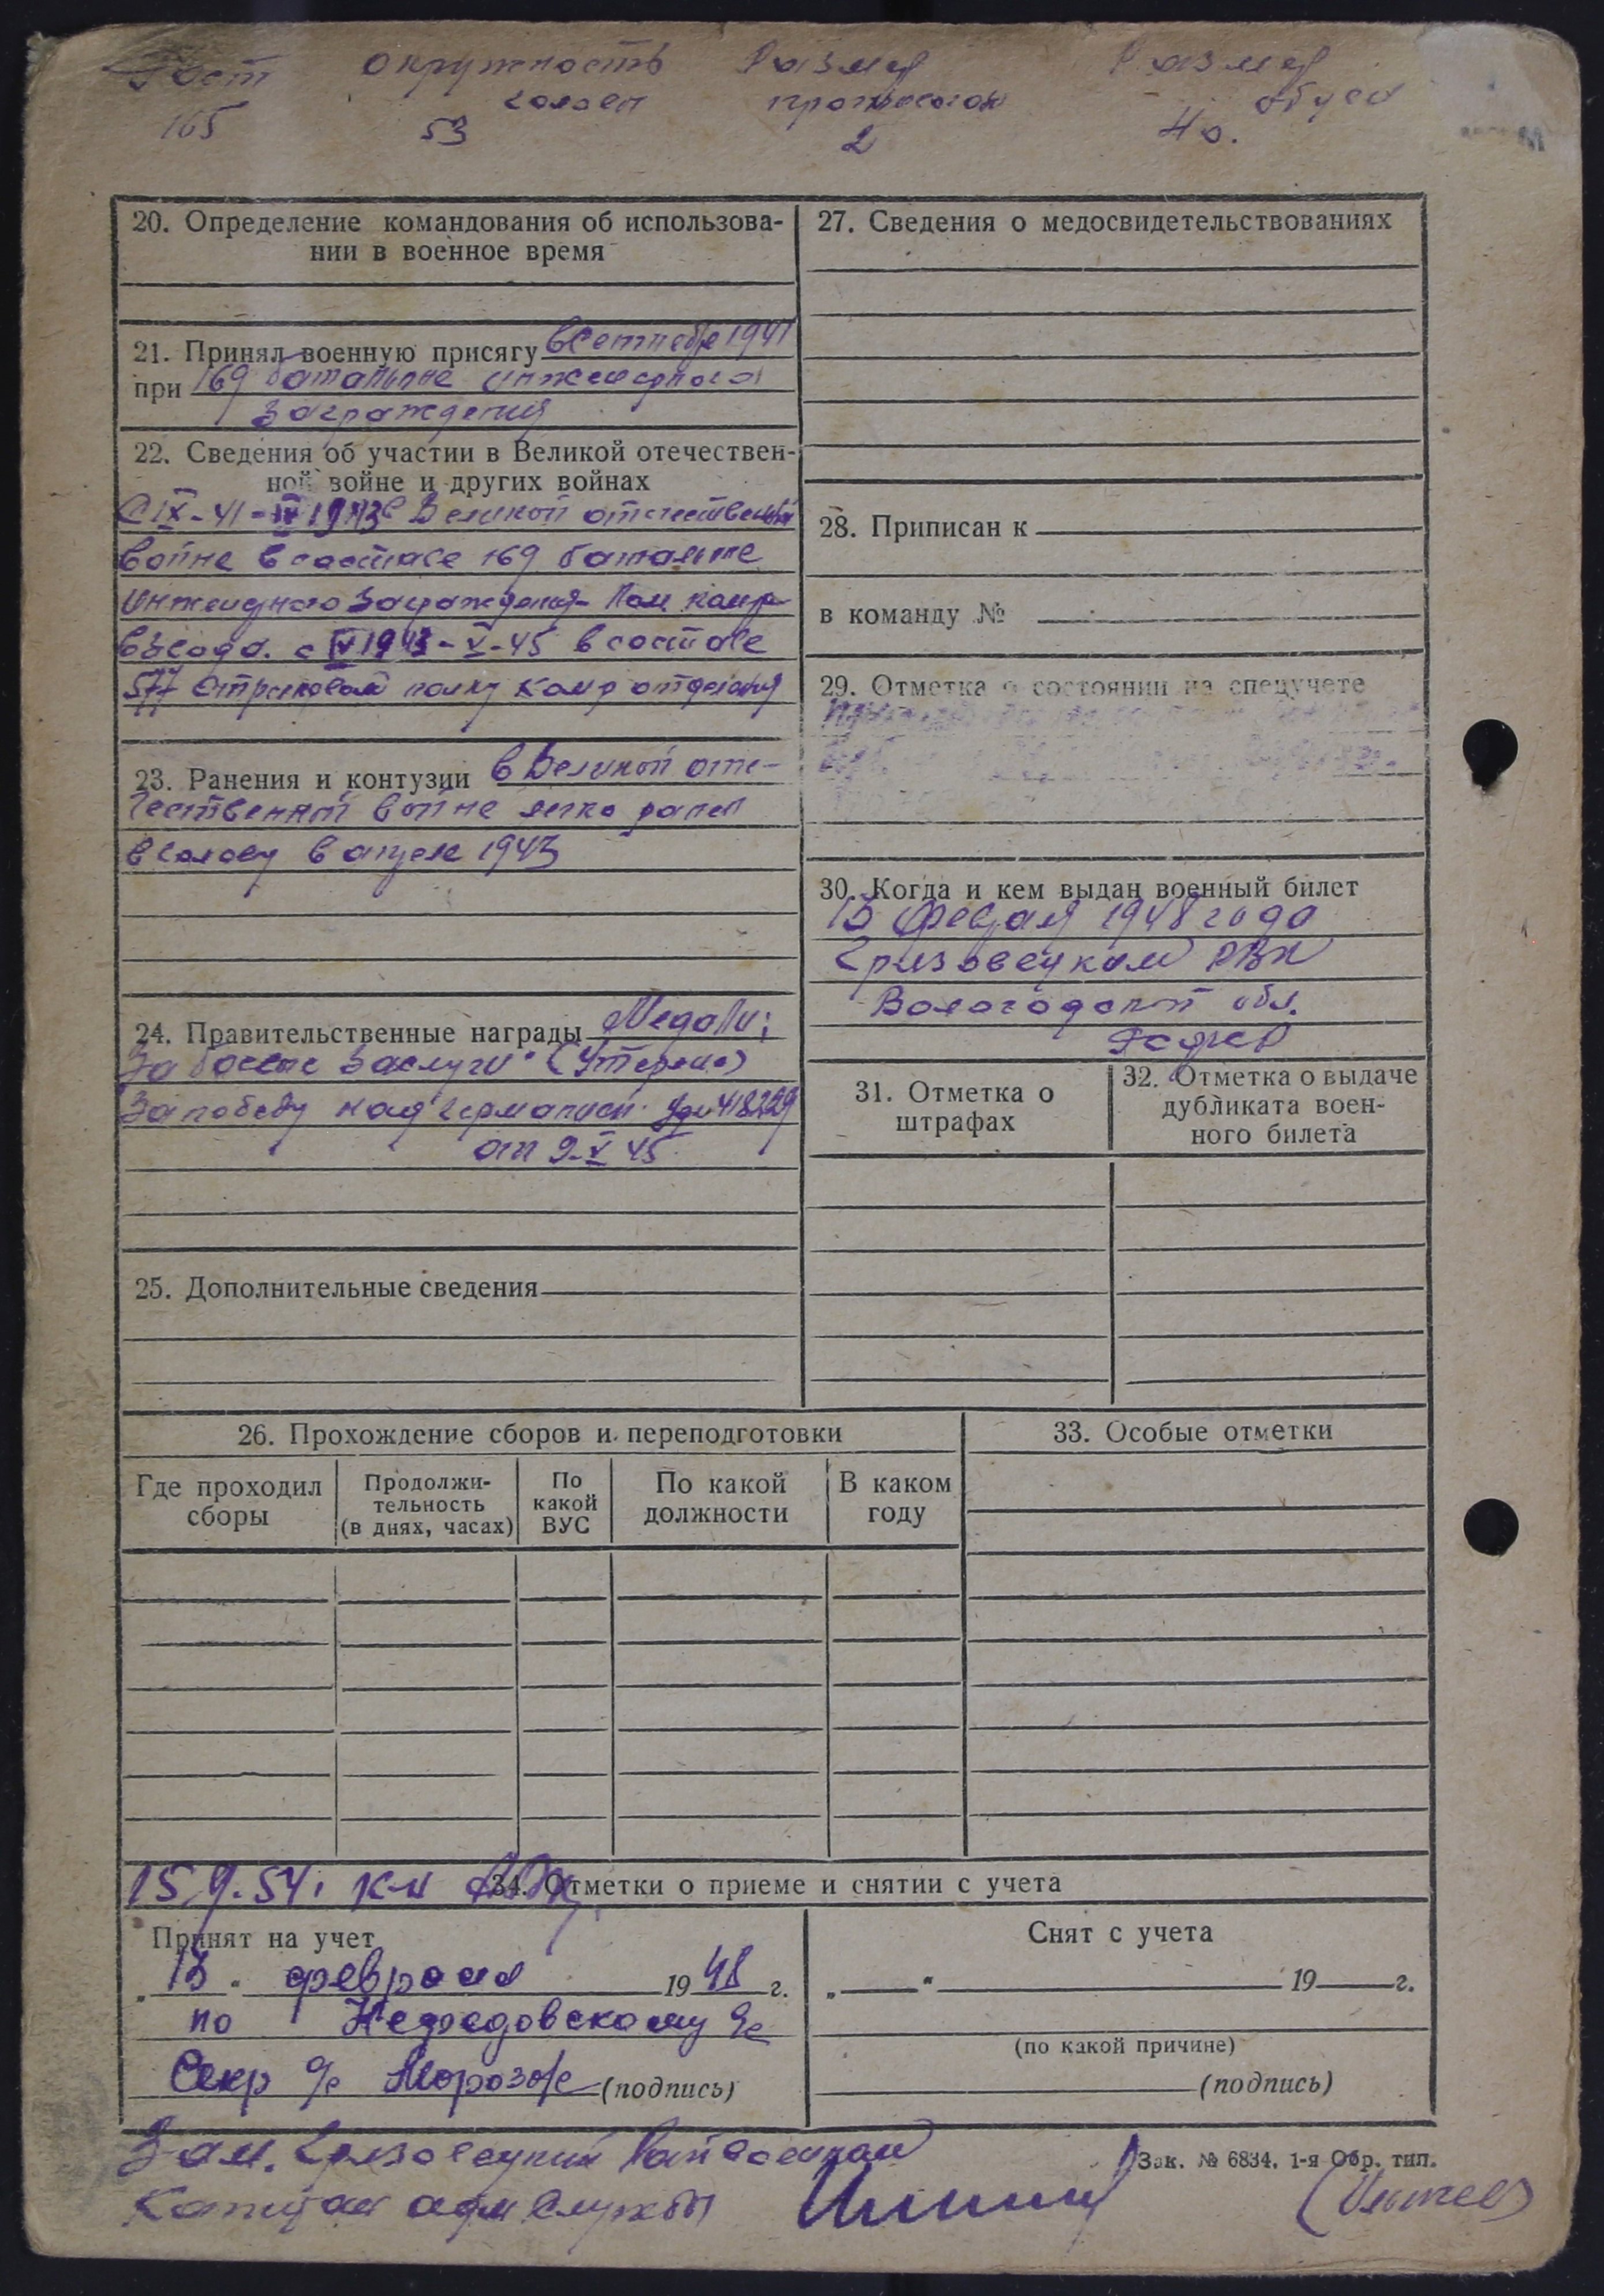 Рост окружность Размер Размер
головы противогаза обуви
165 53 2 40.
20. Определение командования об использова-
нии в военное время
21. Принял военную присягу в Сентябре 1941
при 169 батальоне инженерного
заграждения
22. Сведения об участии в Великой отечествен-
ной войне и других войнах
С IX-41-IV 1943 в Великой отечественной
войне в составе 169 батальоне
Инженерного Заграждения Пом ком
взвода. с IV 1943-V-45 в составе
577 Стрелковом полку Комр отделения
23. Ранения и контузии в Великой оте-
чественной войне легко ранен
в голову в апреле 1943
24. Правительственные награды Медали;
За боевые Заслуги" (Утеряно)
За победу над Германией. Уд. 418229
от 9-V 45
25. Дополнительные сведения
27. Сведения о медосвидетельствованиях
28. Приписан к
в команду №
29. Отметка о состоянии на спецучете
30. Когда и кем выдан военный билет
13 февраля 1948 года
Грязовецким РВК
Вологодской обл.
31. Отметка о
штрафах
32. Отметка о выдаче
дубликата воен-
ного билета
26. Прохождение сборов и переподготовки
Где проходил
сборы
Продолжи-
тельность
(в днях, часах)
По
какой
ВУС
По какой
должности
В каком
году
33. Особые отметки
15.9.54. к-н
34. Отметки о приеме и снятии с учета
Принят на учет
„13" февраля 1948 г.
по Нефедовскому с/с
Секр с/с Морозов (подпись)
Снят с учета
„ " 19 г.
(по какой причине)
(подпись)
Зам. Грязовецкий Райвоенком
Капитан адм службы
Зак. № 6834. 1-я Обр. тип.